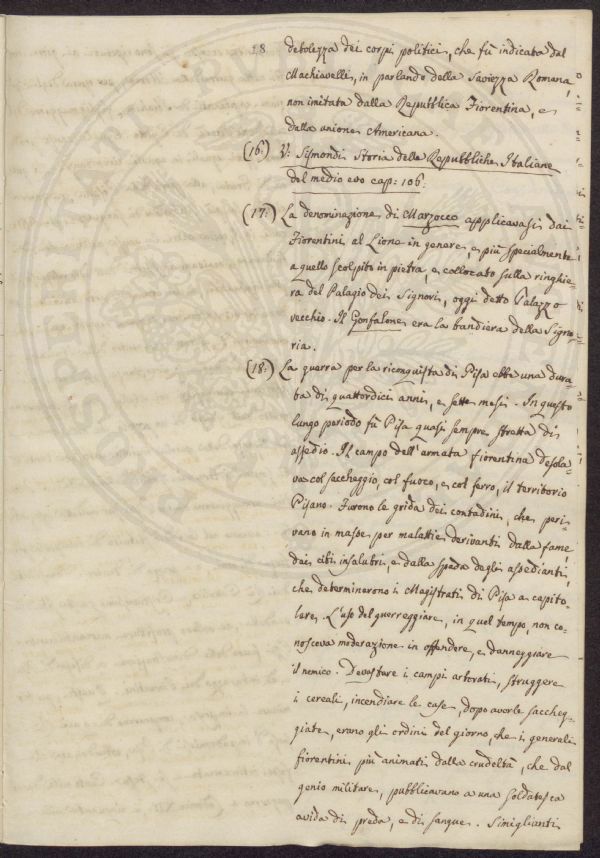 18 debolezza dei corpi politici, che fù indicata dal
Machiavelli, in parlando della Saviezza Romana,
non imitata dalla Repubblica Fiorentina, e
dalla unione Americana.
(16:) V: Sismondi Storia delle Repubbliche Italiane
del medio evo cap: 106:
(17:) La denominazione di Marzocco applicavasi dai
Fiorentini al Lione in genere, e più specialmente
a quello scolpito in pietra, e collocato sulla ringhie-
ra del Palagio dei Signori, oggi detto Palazzo
vecchio. Il Gonfalone era la bandiera della Signo-
ria.
(18:) La guerra per la riconquista di Pisa ebbe una dura-
ta di quattordici anni, e sette mesi. In questo
lungo periodo fù Pisa quasi sempre stretta di
assedio. Il campo dell'armata fiorentina desola-
va col saccheggio, col fuoco, e col ferro, il territorio
Pisano. Furono le grida dei contadini, che peri-
vano in masse per malattie derivanti dalla fame,
dai cibi insalubri, e dalla spada degli assedianti,
che determinarono i Magistrati di Pisa a capito-
lare. L'uso del guerreggiare, in quel tempo, non co-
nosceva moderazione in offendere, e danneggiare
il nemico. Devastare i campi arborati, struggere
i cereali, incendiare le case, dopo averle saccheg-
giate, erano gli ordini del giorno, che i generali
fiorentini più animati dalla crudeltà, che dal
genio militare, pubblicavano a una soldatesca
avida di preda, e di sangue. Simiglianti